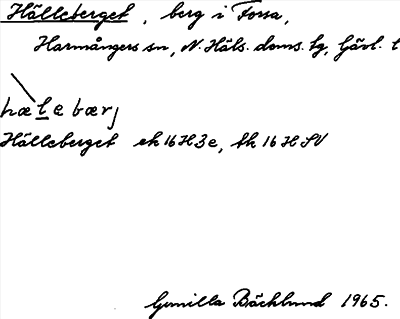 Hälleberget, berg i Forsa,
Harmångers sn, N. Häls. doms. tg, Gävl. l
hælebærj
Hälleberget ek 16H3e, tk 16 H SV
Gunilla Bäcklund 1965.